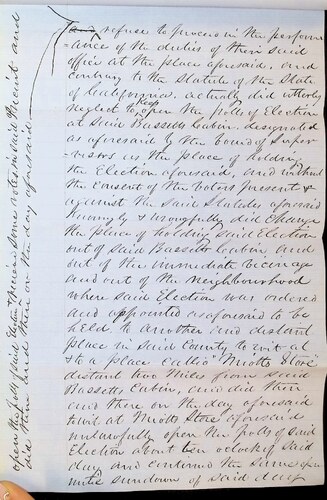 and refuse to proceed in the perform
ance of the duties of their said
office at the place aforesaid, and
contrary to the Statute of the State
of California. actually did utterly
neglect to keep open the polls of Election
at Said Bassetts Cabin, designated
as aforesaid by the board of Super
visors as the place of holding
the Election aforesaid, and without
the consent of the voters present &
against the Said Statutes aforesaid
Knowingly & wrongfully did Change
the place of holding said Election
out of said Bassetts Cabin and
out of the immediate vicinage
and out of the neighbourhood
where said Election was ordered
and appointed as aforesaid to be
held to another and distant
place in said County to wit at
& to a place called Miotts Store
distant two Miles from said
Bassetts Cabin, and did then
and there on the day aforesaid
to wit at Miotts Store aforesaid
unlawfully open the polls of said
Election about ten oclock of said
day and continued the Same open
until sundown of said day
open the polls of said Election & receive some votes in said Precinct and
did then and there on the day aforesaid